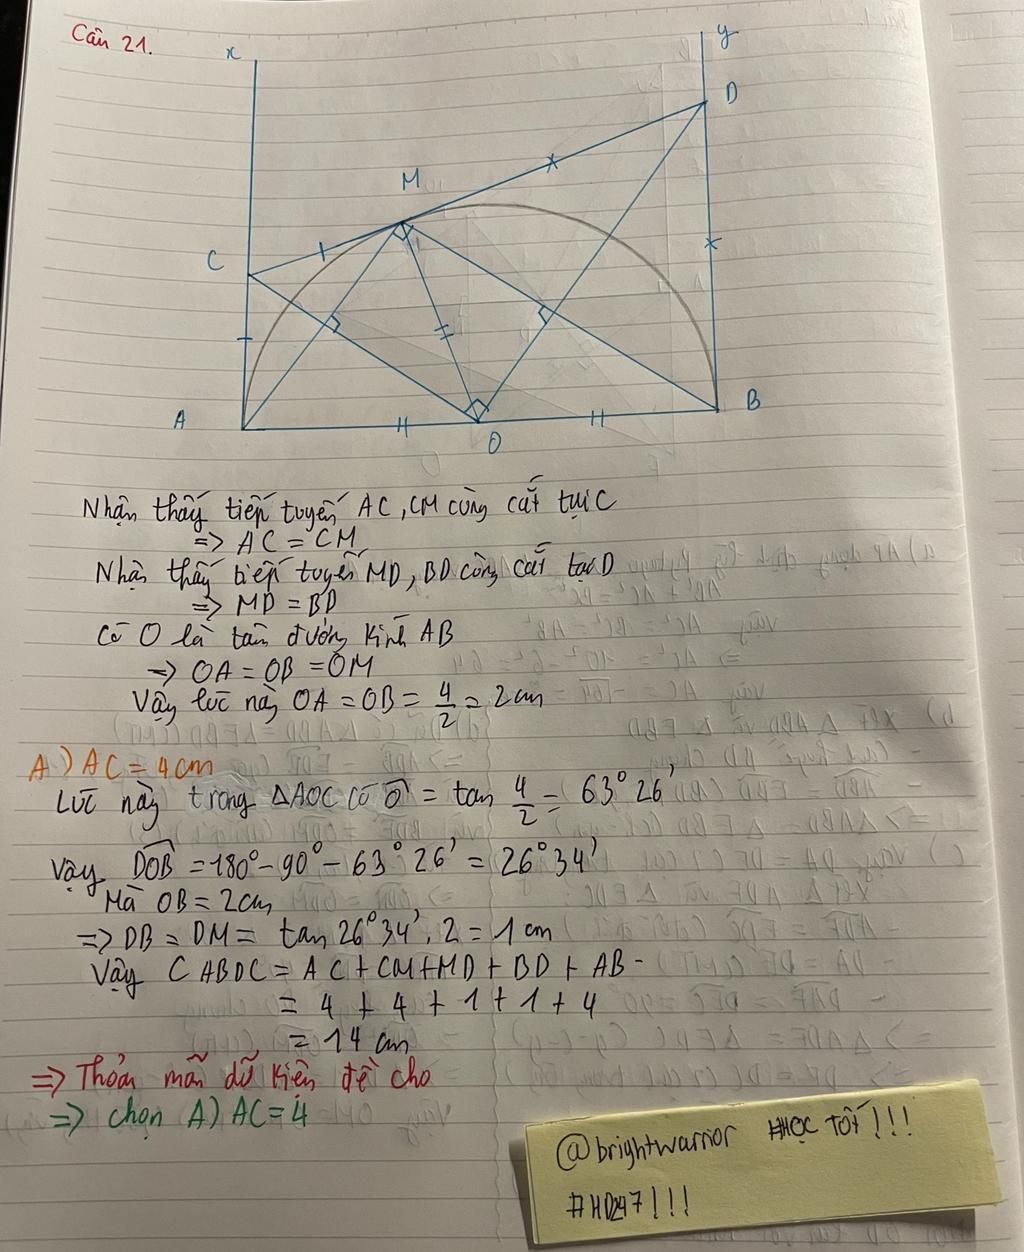 Câu 21.
x
y
D
M
C
A
O
B
Nhận thấy tiếp tuyến AC, CM cùng cắt tại C
=> AC = CM
Nhận thấy tiếp tuyến MD, BD cùng cắt tại D
=> MD = BD
Có O là tâm đường kính AB
=> OA = OB = OM
Vậy lúc này OA = OB = 4/2 = 2cm
A) AC = 4cm
Lúc này trong ΔAOC có Ô = tan 4/2 = 63°26'
Vậy DOB = 180° - 90° - 63°26' = 26°34'
Mà OB = 2cm
=> DB = DM = tan 26°34' . 2 = 1 cm
Vậy C ABDC = AC + CM + MD + BD + AB
= 4 + 4 + 1 + 1 + 4
= 14 cm
=> Thỏa mãn dữ kiện đề cho
=> chọn A) AC = 4
@brightwarrior #HỌC TỐT!!!
#HD247!!!